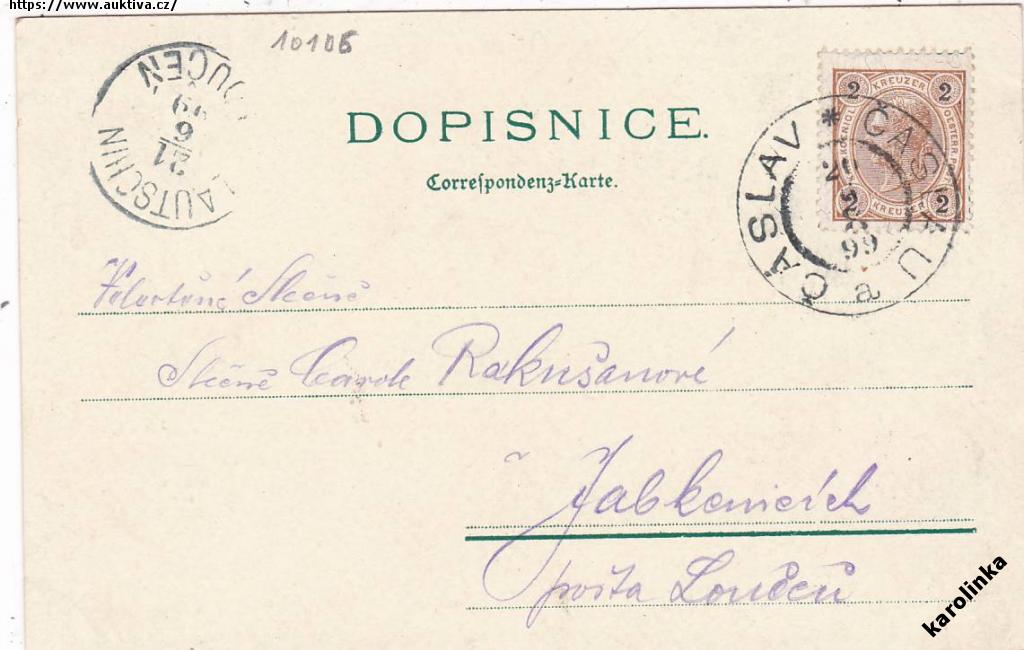 https://www.aukTiva.cz/
10106
LAUTSCHIN LOUČEŇ
21
6
99
DOPISNICE.
Correspondenz-Karte.
2 KREUZER 2
2 KREUZER 2
ČASLAV * ČASLAU a
99
Slečně
Slečně Rakušanové
v Jabkenicích
pošta Loučeň
karolinka